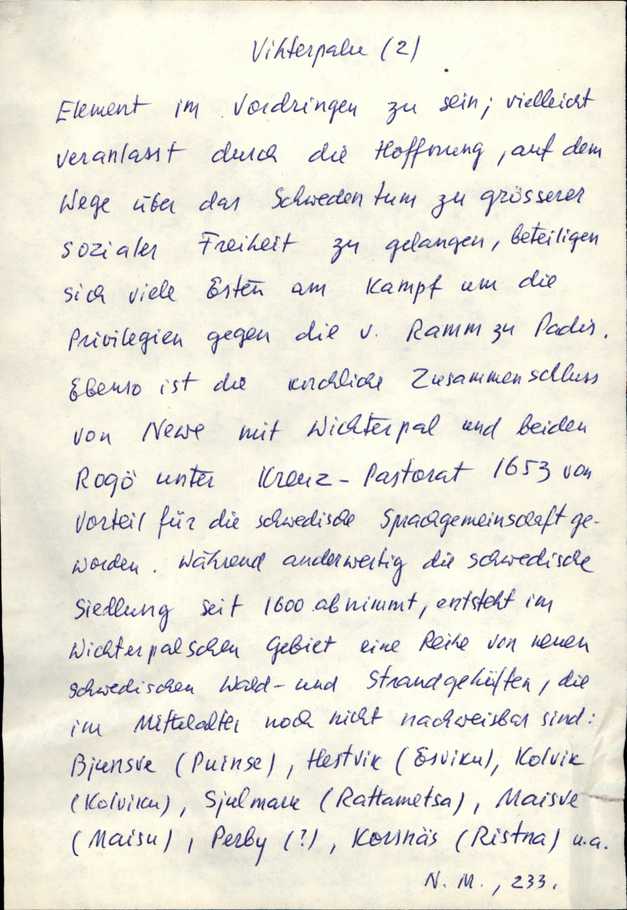 Vihterpalu (2)
Element im Vordringen zu sein; vielleicht
veranlasst durch die Hoffnung, auf dem
Wege über das Schwedentum zu grösserer
sozialer Freiheit zu gelangen, beteiligen
sich viele Esten am Kampf um die
Privilegien gegen die v. Ramm zu Padis.
Ebenso ist die kirchliche Zusammenschluss
von Newe mit Wichterpal und beiden
Rogö unter Kreuz-Pastorat 1653 von
Vorteil für die schwedische Sprachgemeinschaft ge-
worden. Während anderwertig die schwedische
Siedlung seit 1600 abnimmt, entsteht im
Wichterpalschen Gebiet eine Reihe von neuen
schwedischen Wald- und Strandgehöften, die
im Mittelalter noch nicht nachweisbar sind:
Bjunsve (Puinse), Hestvik (Esviku), Kolvik
(Kolviku), Sjulmark (Rattametsa), Maisve
(Maisu), Perby (?), Korsnäs (Ristna) u.a.
N. M., 233.